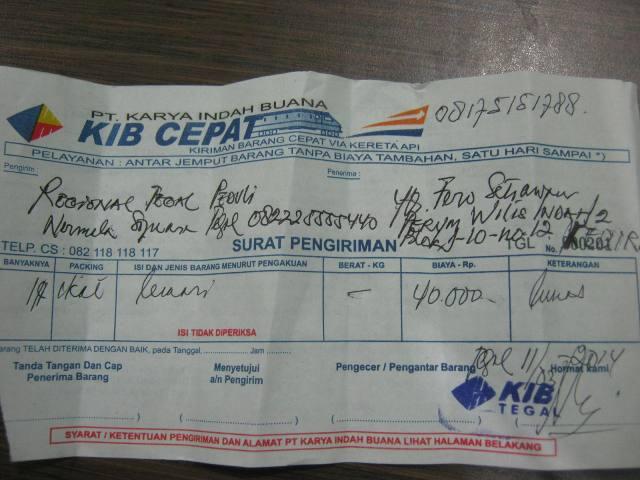 PT. KARYA INDAH BUANA
KIB CEPAT
KIRIMAN BARANG CEPAT VIA KERETA API
08175151788.
PELAYANAN : ANTAR JEMPUT BARANG TANPA BIAYA TAMBAHAN, SATU HARI SAMPAI *)
Pengirim :
Penerima :
REGIONAL TEGAL
Square Tgl
WILIS INDAH 2
TELP. CS : 082 118 118 117
SURAT PENGIRIMAN
TGL No.
BANYAKNYA PACKING ISI DAN JENIS BARANG MENURUT PENGAKUAN BERAT - KG BIAYA - Rp. KETERANGAN
ikat lemari – 40.000.- Lunas
ISI TIDAK DIPERIKSA
arang TELAH DITERIMA DENGAN BAIK, pada Tanggal, Jam
Tgl 11/ 2014
Tanda Tangan Dan Cap Menyetujui Pengecer / Pengantar Barang Hormat kami
Penerima Barang a/n Pengirim
KIB
TEGAL
SYARAT / KETENTUAN PENGIRIMAN DAN ALAMAT PT KARYA INDAH BUANA LIHAT HALAMAN BELAKANG